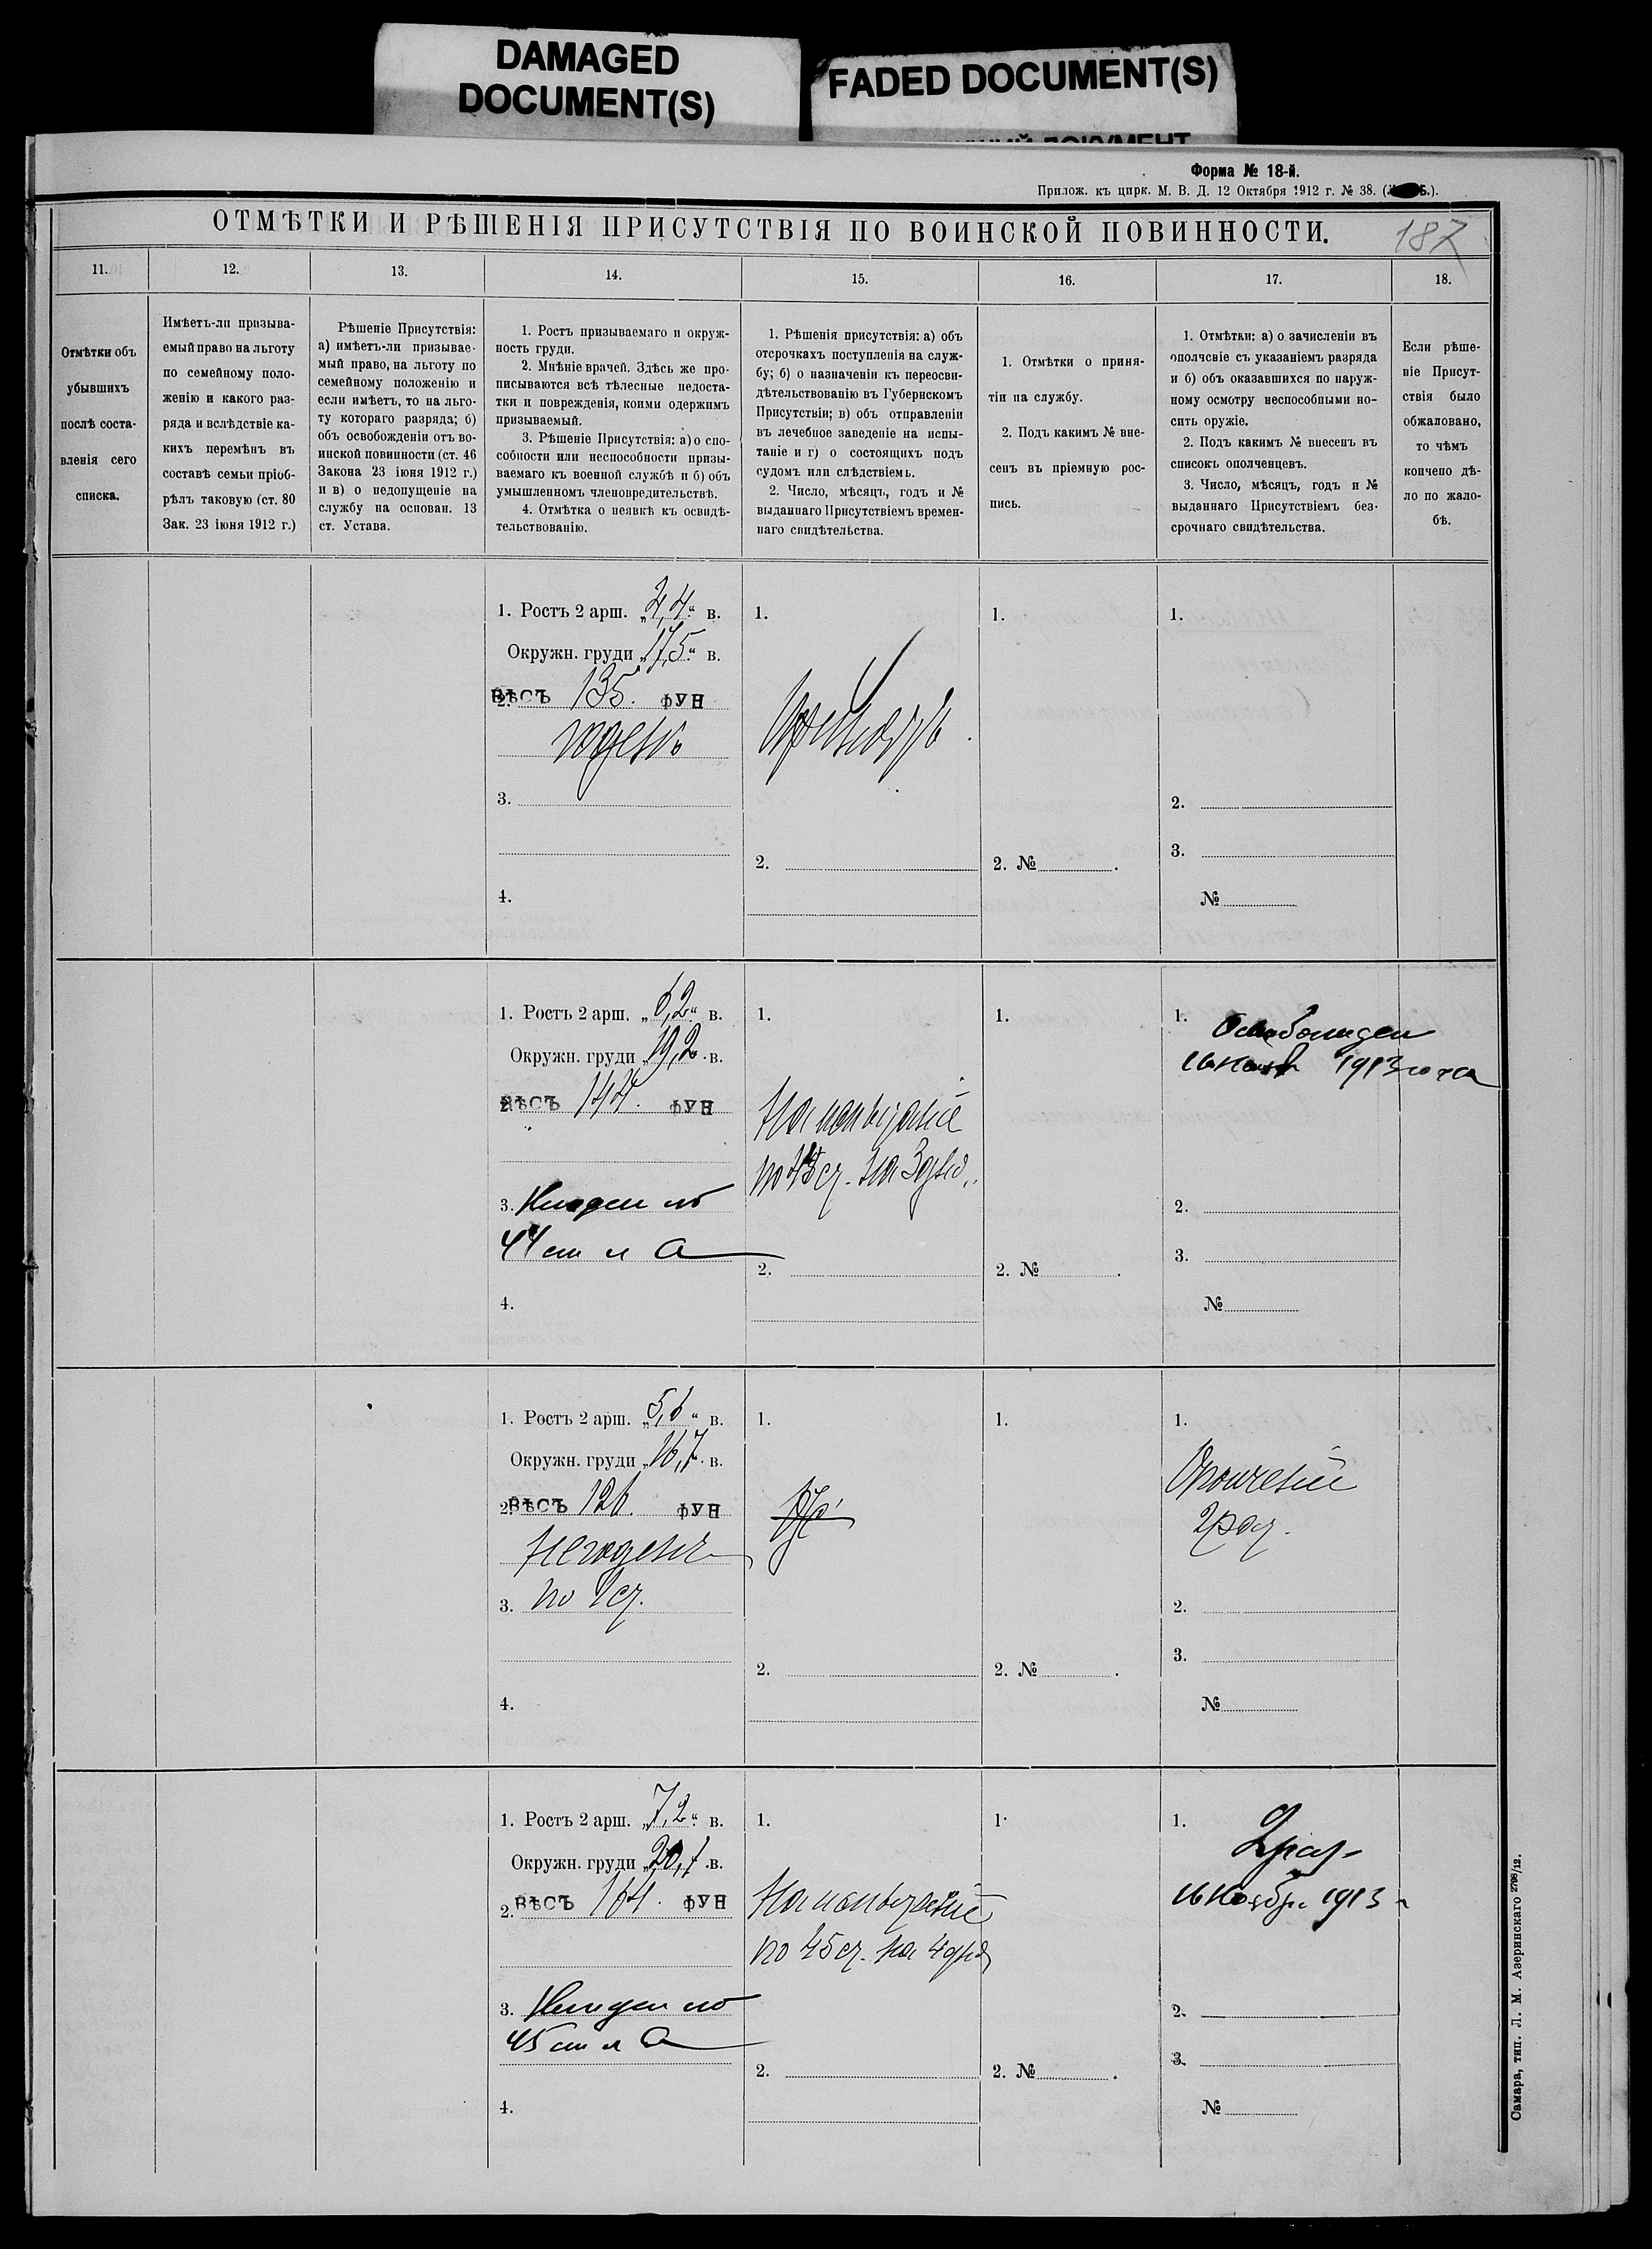 DAMAGED
DOCUMENT(S)
FADED DOCUMENT(S)
Форма № 18-й.
Прилож. къ цирк. М. В. Д. 12 Октября 1912 г. № 38.
ОТМѢТКИ И РѢШЕНІЯ ПРИСУТСТВІЯ ПО ВОИНСКОЙ ПОВИННОСТИ.
187
11.
12.
13.
14.
15.
16.
17.
18.
Отмѣтки объ
убывшихъ
послѣ соста-
вленія сего
списка.
Имѣетъ-ли призыва-
емый право на льготу
по семейному поло-
женію и какого раз-
ряда и вслѣдствіе ка-
кихъ перемѣнъ въ
составѣ семьи пріоб-
рѣлъ таковую (ст. 80
Зак. 23 іюня 1912 г.)
Рѣшеніе Присутствія:
а) имѣетъ-ли призывае-
мый право, на льготу по
семейному положенію и
если имѣетъ, то на льго-
ту котораго разряда; б)
объ освобожденіи отъ во-
инской повинности (ст. 46
Закона 23 іюня 1912 г.)
и в) о недопущеніе на
службу на основан. 13
ст. Устава.
1. Ростъ призываемаго и окруж-
ность груди.
2. Мнѣніе врачей. Здѣсь же про-
писываются всѣ тѣлесные недоста-
тки и поврежденія, коими одержимъ
призываемый.
3. Рѣшеніе Присутствія: а) о спо-
собности или неспособности призы-
ваемаго къ военной службѣ и б) объ
умышленномъ членовредительствѣ.
4. Отмѣтка о неявкѣ къ освидѣ-
тельствованію.
1. Рѣшенія присутствія: а) объ
отсрочкахъ поступленія на служ-
бу; б) о назначеніи къ переосви-
дѣтельствованію въ Губернскомъ
Присутствіи; в) объ отправленіи
въ лечебное заведеніе на испы-
таніе и г) о состоящихъ подъ
судомъ или слѣдствіемъ.
2. Число, мѣсяцъ, годъ и №
выданнаго Присутствіемъ времен-
наго свидѣтельства.
1. Отмѣтки о приня-
тіи на службу.
2. Подъ какимъ № вне-
сенъ въ пріемную рос-
пись.
1. Отмѣтки: а) о зачисленіи въ
ополченіе съ указаніемъ разряда
и б) объ оказавшихся по наруж-
ному осмотру неспособными но-
сить оружіе.
2. Подъ какимъ № внесенъ въ
списокъ ополченцевъ.
3. Число, мѣсяцъ, годъ и №
выданнаго Присутствіемъ без-
срочнаго свидѣтельства.
Если рѣше-
ніе Присут-
ствія было
обжаловано,
то чѣмъ
кончено дѣ-
ло по жало-
бѣ.
1. Ростъ 2 арш. „4,4“ в.
Окружн. груди „17,5“ в.
2. ВѢСЪ 135. ФУН
годенъ
3.
4.
1.
2.
1.
2. № .
1.
2.
3.
№
1. Ростъ 2 арш. „6,2“ в.
Окружн. груди „19,2 в.
2. ВѢСЪ 144. ФУН
3. Негоден по
44 ст л А
4.
1.
На испытаніе
на 3 дня.
2.
1.
2. № .
1. Освобожден
16 Нояб 1913 года
2.
3.
№
1. Ростъ 2 арш. „5,6“ в.
Окружн. груди „16,7 в.
2. ВѢСЪ 126. ФУН
Негоденъ
3. по
4.
1.
2.
1.
2. № .
1.
Ополченіе
2 раз.
2.
3.
№
1. Ростъ 2 арш. „7,2“ в.
Окружн. груди „20,1 в.
2. ВѢСЪ 164. ФУН
3. Негоден по
45 ст л А
4.
1.
На испытаніе
по 45 ст. на 4 дня
2.
1.
2. № .
1. 2 раз.
16 Ноября 1913 г
2.
3.
№
Самара, тип. Л. М. Азеринскаго 2798/12.